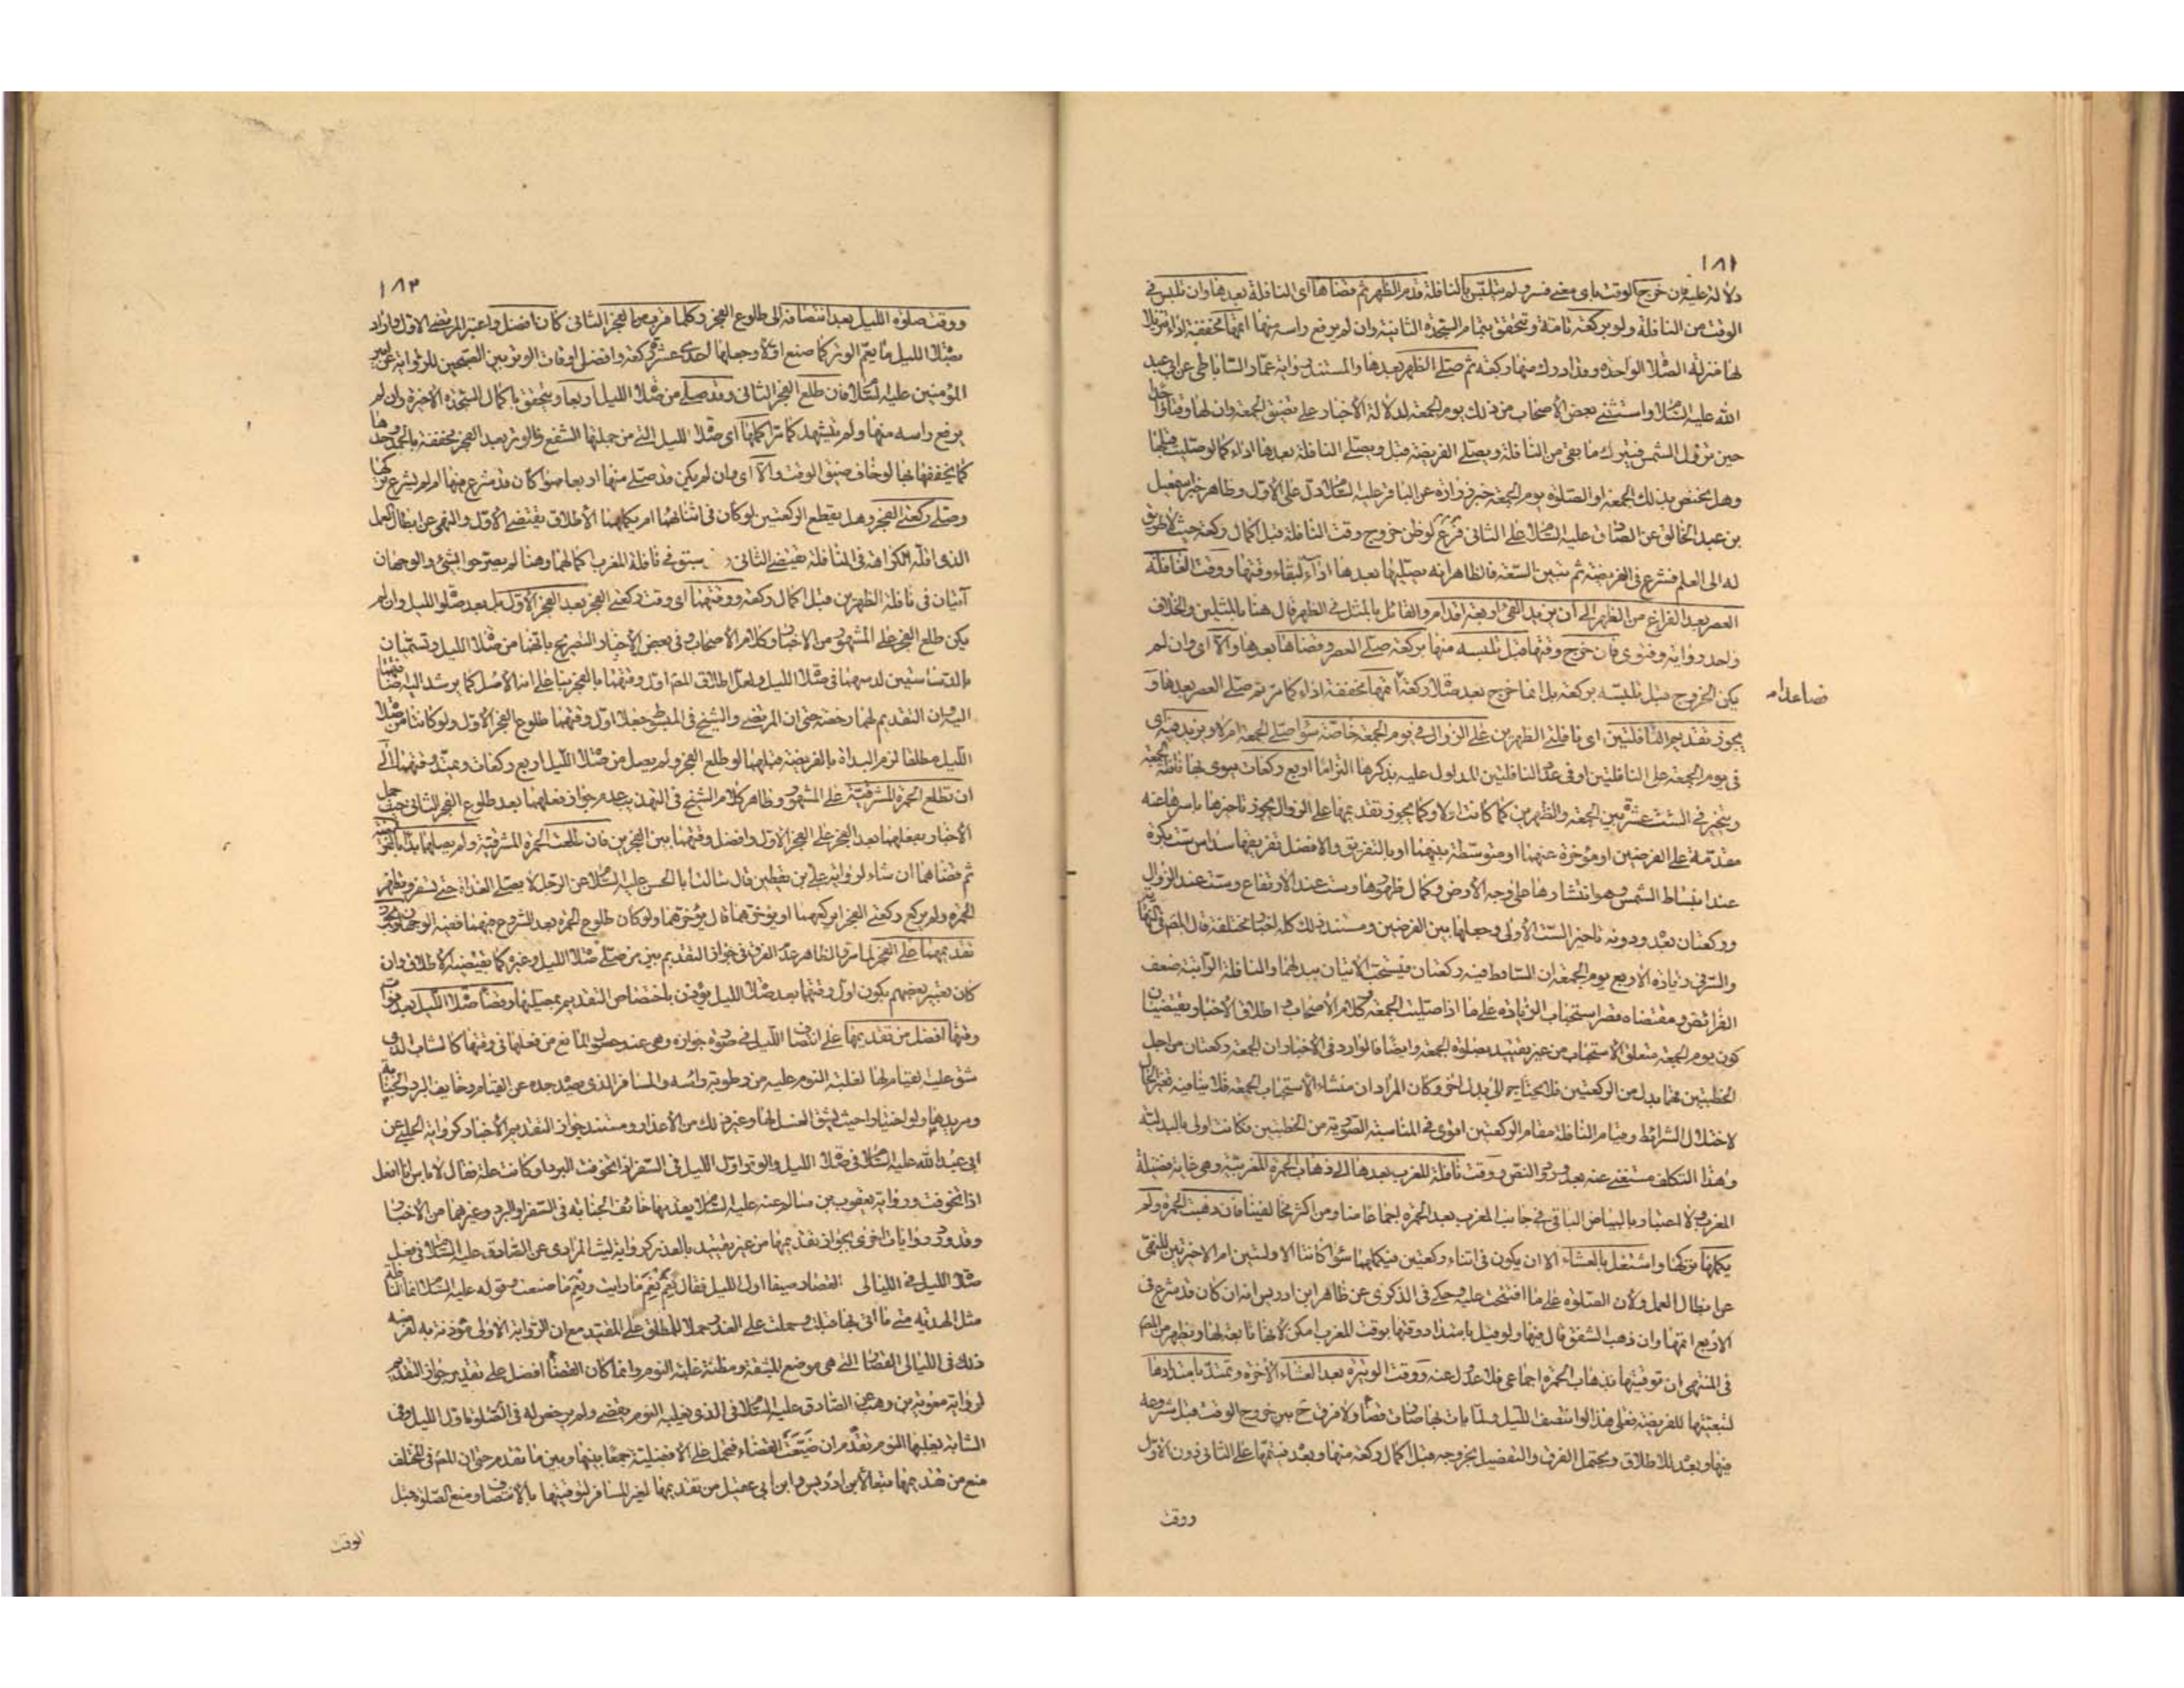 ١٨١
دلالة عليه فان خرج الوقت باى معنى فسر ولم يتلبس بالنافلة قدم الظهر ثم قضاها اى النافلة بعدها وان تلبس في
الوقت من النافلة ولو بركعة تامة وتتحقق بتمام السجدة الثانية وان لم يرفع راسه منها اتمها مخففة اداء تنزيلا
لها منزلة الصلاة الواحدة وقد ادرك منها ركعة ثم صلى الظهر بعدها والمستند رواية عمار الساباطى عن ابى عبد
الله عليه السلام واستثنى بعض الاصحاب من ذلك يوم الجمعة لدلالة الاخبار على تضيق الجمعة وان لها وقتا واحدا
حين تزول الشمس فيترك ما بقى من النافلة ويصلى الفريضة قبل ويصلى النافلة بعدها اداء كما لو صليت قبلها
وهل يختص بذلك الجمعة او الصلوة يوم الجمعة خبر زرارة عن الباقر عليه السلام دل على الاول وظاهر خبر اسمعيل
بن عبد الخالق عن الصادق عليه السلام على الثانى فرع لو ظن خروج وقت النافلة قبل اكمال ركعة حيث لا طريق
له الى العلم فشرع فى الفريضة ثم تبين السعة فالظاهر انه يصليها بعدها اداء لبقاء وقتها ووقت النافلة
العصر بعد الفراغ من الظهر الى ان يزيد الفئ اربعة اقدام والقائل بالمثل فى الظهر قال هنا بالمثلين والخلاف
واحد رواية وفتوى فان خرج وقتها قبل تلبسه منها بركعة صلى العصر وقضاها بعدها والا اى وان لم
يكن الخروج قبل تلبسه بركعة بل انما خرج بعد صلاة ركعة فصاعدا اتمها مخففة اداء كما مر ثم صلى العصر بعدها و
يجوز تقديم النافلتين اى نافلتى الظهرين على الزوال فى يوم الجمعة خاصة سواء صلى الجمعة ام لا ويزيد فيه اى
فى يوم الجمعة على النافلتين او فى عدد النافلتين المدلول عليه بذكرها التزاما اربع ركعات ينوى بها نافلة الجمعة
ويتخير فى الست عشرة بين الجمعة والظهرين كما كانت اولا وكما يجوز تقديمها على الزوال يجوز تاخيرها باسرها عنه
مقدمة على الفرضين او مؤخرة عنهما او متوسطة بينهما او بالتفريق والافضل تفريقها سداس ست بكرة
عند انبساط الشمس وهو انتشارها على وجه الارض وكمال ظهورها وست عند الارتفاع وست عند الزوال
وركعتان بعد ودونه تاخير الست الاولى وجعلها بين الفرضين ومستند ذلك كله اخبار مختلفة قال المص فى النهاية
والسر فى زيادة الاربع يوم الجمعة ان الساقط فيه ركعتان فيستحب الاتيان ببدلهما والنافلة الراتبة ضعف
الفرائض ومقتضاه قصر استحباب الزيادة على ما اذا صليت الجمعة وكلام الاصحاب واطلاق الاخبار يقتضيان
كون يوم الجمعة متعلق الاستحباب من غير تقييد بصلوة الجمعة وايضا فالوارد فى الاخبار ان الجمعة ركعتان من اجل
الخطبتين فهما بدل من الركعتين فلا يحتاج الى بدل اخر وكان المراد ان منشاء الاستحباب الجمعة فلا ينافيه تغير الحال
لاختلال الشرائط وقيام النافلة مقام الركعتين اقوى فى المناسبة الصورية من الخطبتين فكانت اولى بالبدلية
وهذا التكلف مستغنى عنه بعد ورود النص ووقت نافلة المغرب بعدها الى ذهاب الحمرة المغربية وهى غاية فضيلة
المغرب ولا اعتبار بالبياض الباقى فى جانب المغرب بعد الحمرة اجماعا منا ومن اكثر مخالفينا فان ذهبت الحمرة ولم
يكملها تركها واشتغل بالعشاء الا ان يكون فى اثناء ركعتين فيكملهما سواء كانتا الاولتين ام الاخيرتين للنهى
عن ابطال العمل ولان الصلوة على ما افتتحت عليه وحكى فى الذكرى عن ظاهر ابن ادريس انه ان كان قد شرع فى
الاربع اتمها وان ذهب الشفق قال فيها ولو قيل بامتداد وقتها بوقت المغرب امكن لانها تابعة لها ويظهر من المص
فى المنتهى ان توقيتها بذهاب الحمرة اجماعى فلا عدول عنه ووقت الوتيرة بعد العشاء الاخرة وتمتد بامتدادها
لتبعيتها للفريضة فعلى هذا لو انتصف الليل ولما يات بها صارت قضاء ولا فرق ح بين خروج الوقت قبل شروعه
فيها وبعد للاطلاق ويحتمل الفرق والتفصيل بخروجه قبل اكمال ركعة منها وبعد فيتمها على الثانى دون الاول
ووقت
١٨٢
ووقت صلوة الليل بعد انتصافه الى طلوع الفجر وكلما قرب من الفجر الثانى كان افضل واعتبر المرتضى الاول واراد
بصلاة الليل ما يعم الوتر كما صنع اولا وجعلها احدى عشرة ركعة وافضل اوقات الوتر بين الفجرين للرواية عن امير
المؤمنين عليه السلام فان طلع الفجر الثانى وقد صلى من صلاة الليل اربعا ويتحقق باكمال السجدة الاخيرة وان لم
يرفع راسه منها ولم يتشهد كما مر اكملها اى صلاة الليل التى من جملتها الشفع والوتر بعد الفجر مخففة بالحمد وحدها
كما يخففها بها لو خاف ضيق الوقت والا اى وان لم يكن قد صلى منها اربعا سواء كان قد شرع فيها ام لم يشرع تركها
وصلى ركعتى الفجر وهل يقطع الركعتين لو كان فى اثنائهما ام يكملهما الاطلاق يقتضى الاول والنهى عن ابطال العمل
الذى اقله الكراهة فى النافلة يقتضى الثانى و سبق فى نافلة المغرب كمالهما وهنا لم يصرحوا بشئ والوجهان
آتيان فى نافلة الظهرين قبل اكمال ركعة ووقتهما اى وقت ركعتى الفجر بعد الفجر الاول بل بعد صلوة الليل وان لم
يكن طلع الفجر على المشهور من الاخبار وكلام الاصحاب وفى بعض الاخبار التصريح بانهما من صلاة الليل وتسميان
بالدساستين لدسهما فى صلاة الليل ولعل اطلاق المص اول وقتهما بالفجر بناء على انه الاصل كما يرشد اليه
ان التقديم لهما رخصة حتى ان المرتضى والشيخ فى المبسوط جعلا اول وقتهما طلوع الفجر الاول ولو كانتا من صلاة
الليل مطلقا لزم البداة بالفريضة قبلهما لو طلع الفجر ولم يصل من صلاة الليل اربع ركعات ويمتد وقتهما الى
ان تطلع الحمرة المشرقية على المشهور وظاهر كلام الشيخ فى التهذيب عدم جواز فعلهما بعد طلوع الفجر الثانى حيث حمل
الاخبار بفعلهما بعد الفجر على الفجر الاول وافضل وقتهما بين الفجرين فان طلعت الحمرة المشرقية ولم يصلهما بدأ بالفريضة
ثم قضاهما ان شاء لرواية على بن يقطين قال سالت ابا الحسن عليه السلام عن الرجل لا يصلى الغداة حتى تسفر وتظهر
الحمرة ولم يركع ركعتى الفجر ايركعهما او يؤخرهما قال يؤخرهما ولو كان طلوع الحمرة بعد الشروع فيهما ففيه الوجهان ويجوز
تقديمهما على الفجر لما مر والظاهر عدم الفرق فى جواز التقديم بين من صلى صلاة الليل وغيره كما يقتضيه الاطلاق وان
كان تعبير بعضهم بكون اول وقتهما بعد صلاة الليل يؤذن باختصاص التقديم بمصليها وقضاء صلاة الليل بعد فوات
وقتها افضل من تقديمها على انتصاف الليل فى صورة جوازه وهى عند حصول المانع من فعلها فى وقتها كالشاب الذى
شق عليه القيام لها لغلبة النوم عليه من رطوبة راسه والمسافر الذى يصده جده عن القيام وخايف البرد والجنابة
ومريدها ولو اختيارا حيث يشق الغسل لها وغير ذلك من الاعذار ومستند جواز التقديم الاخبار كرواية الحلبى عن
ابى عبد الله عليه السلام فى صلاة الليل والوتر اول الليل فى السفر اذا تخوفت البرد او كانت علة فقال لا باس انا افعل
اذا تخوفت ورواية يعقوب بن سالم عنه عليه السلام يقدمها خائف الجنابة فى السفر او البرد وغيرهما من الاخبار
وقد ورد روايات اخرى بجواز تقديمها من غير تقييد بالعذر كرواية ليث المرادى عن الصادق عليه السلام فى فعل
صلاة الليل فى الليالى القصار صيفا اول الليل فقال نعم نعم ما رايت ونعم ما صنعت وقوله عليه السلام انما النافلة
مثل الهدية متى ما اتى بها قبلت وحملت على العذر حملا للمطلق على المقيد مع ان الرواية الاولى مؤذنة به لفرضه
ذلك فى الليالى القصار التى هى موضع المشقة ومظنة غلبة النوم وانما كان القضاء افضل على تقدير جواز التقديم
لرواية معوية بن وهب عن الصادق عليه السلام فى الذى يغلبه النوم يقضى ولم يرخص له فى الصلوة اول الليل وفى
الشابة يغلبها النوم تقدم ان ضيعت القضاء فتحمل على الافضلية جمعا بينها وبين ما تقدم حتى ان المص فى المختلف
منع من تقديمها متبعا لابن ادريس وابن ابى عقيل من تقديمها لغير المسافر لتوقيتها بالانتصاف ومنع الصلوة قبل
الوقت
فصاعدا م